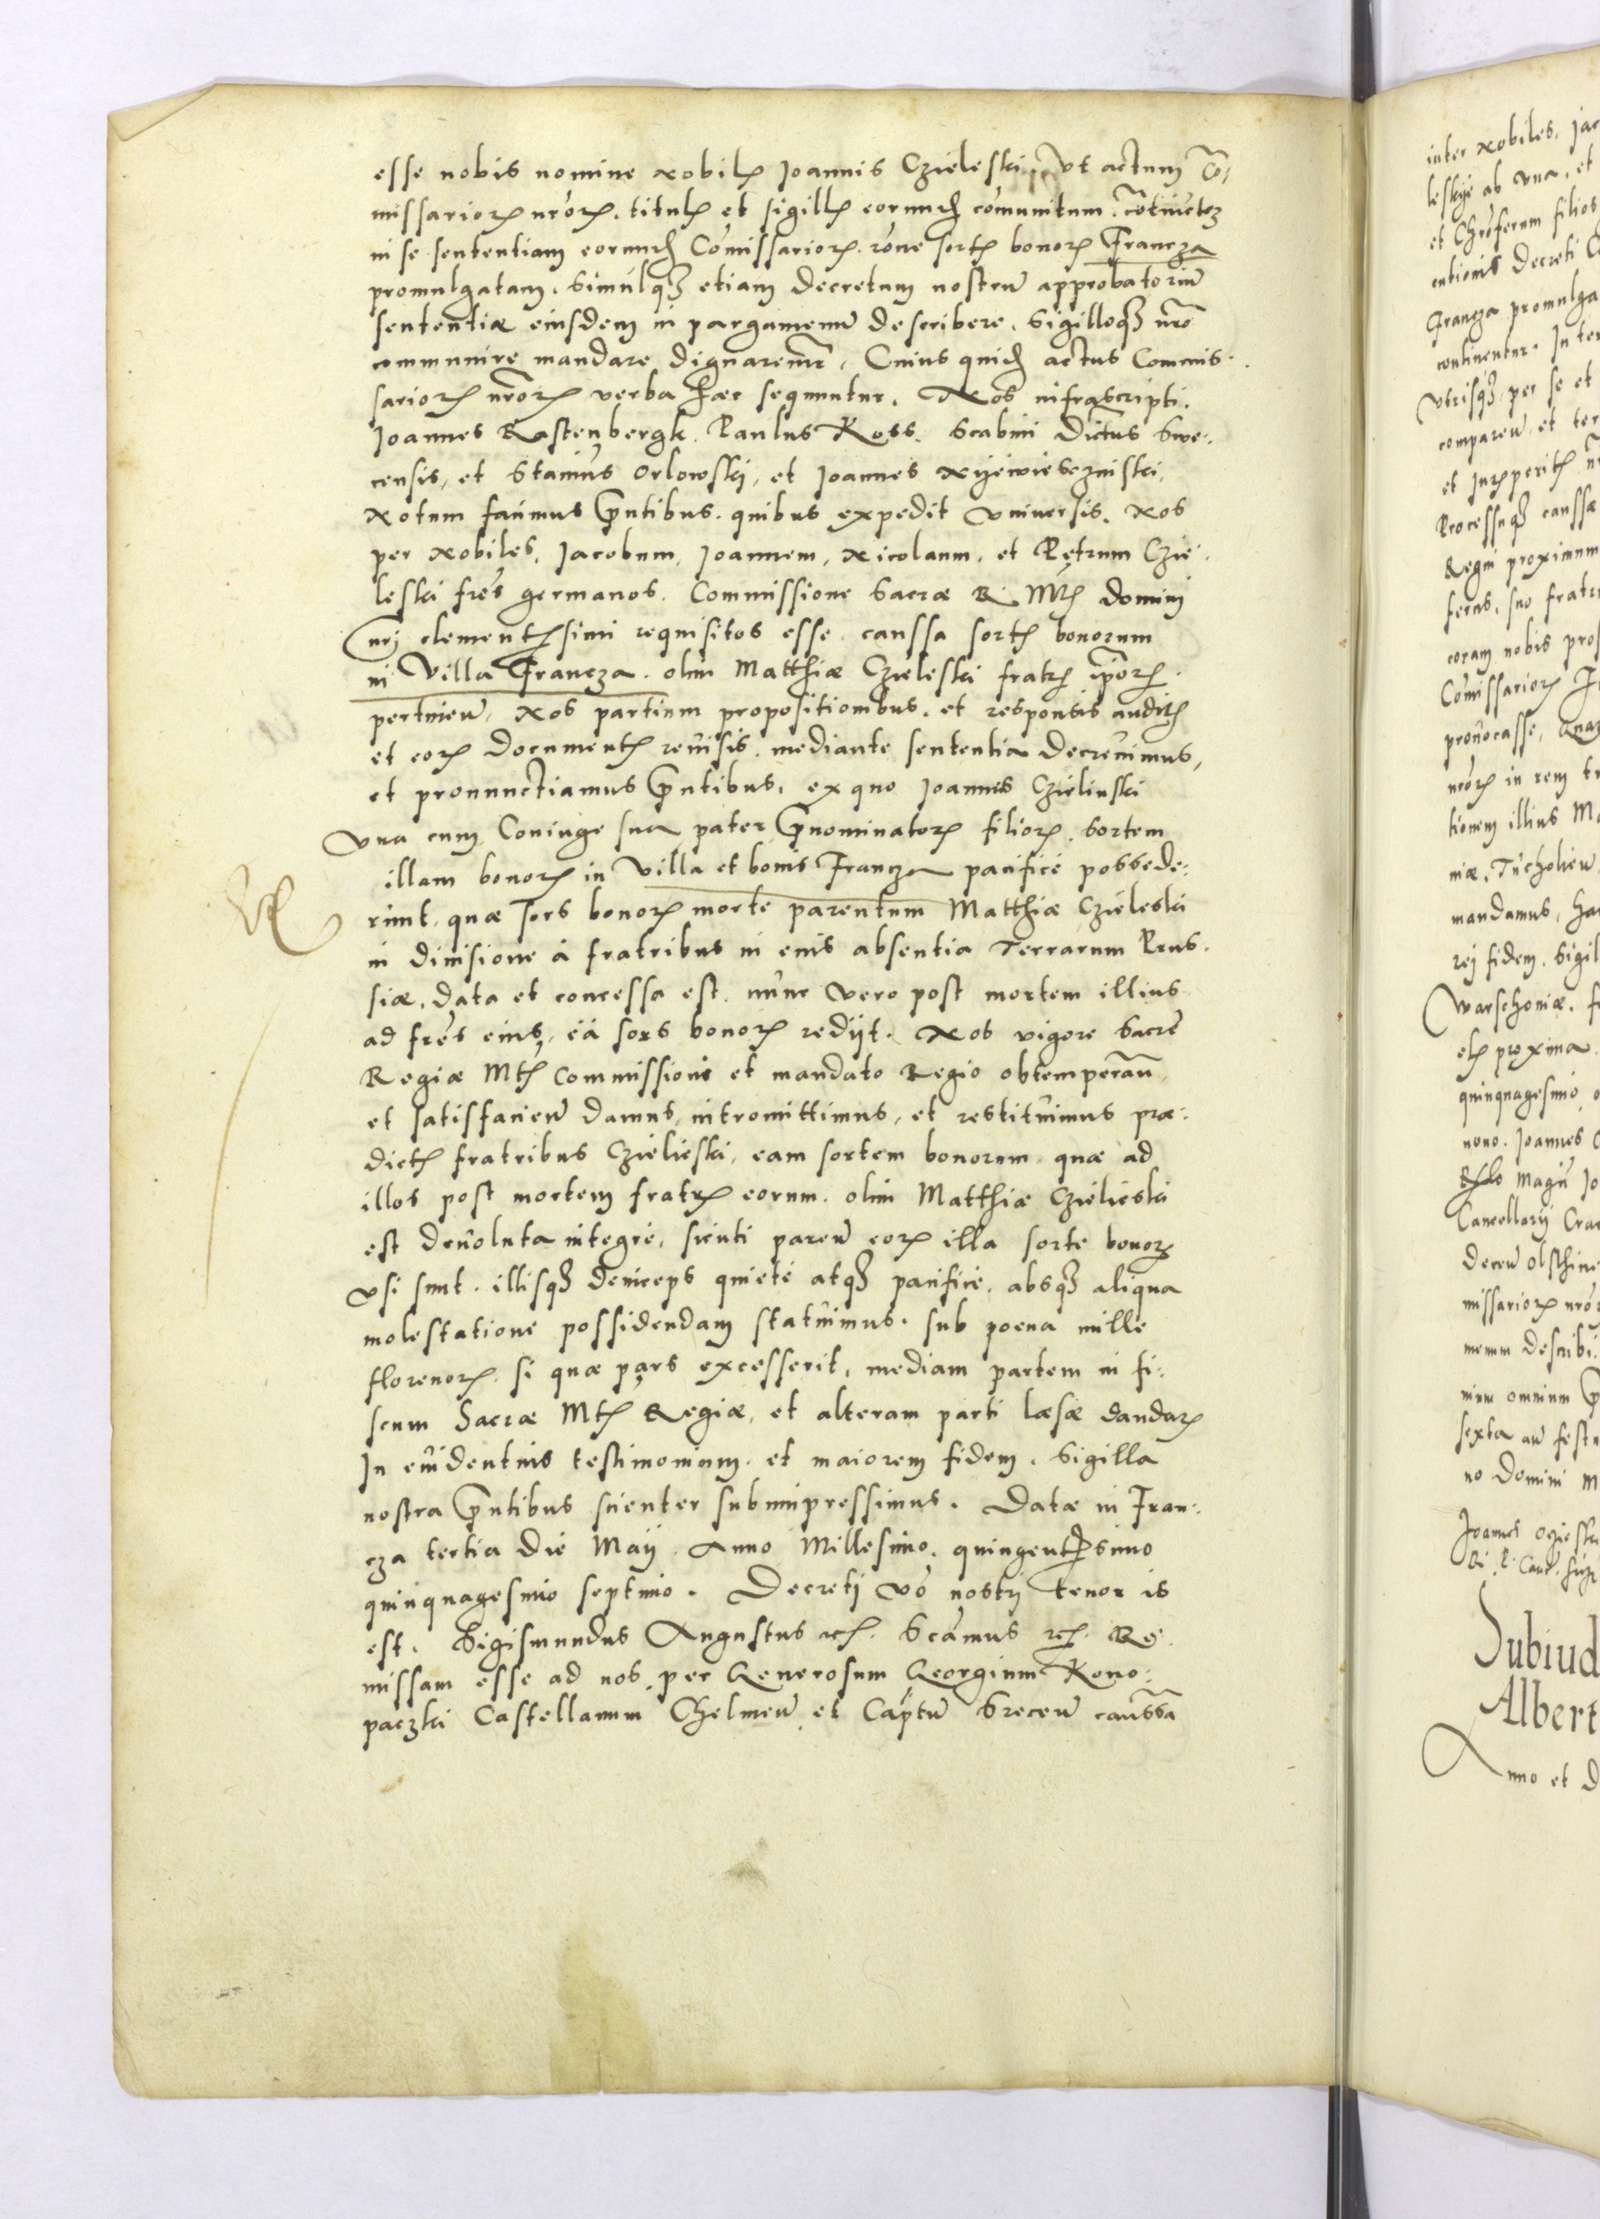 esse nobis nomine Nobilꝭ Joannis Czieleski, Ut actum Co-
missarioꝝ nr̃oꝝ, titulꝭ et sigillꝭ eorund̃ comunitum, cõtinẽtẽ
in se sententiam eorund̃ Comissarioꝝ rõne sortꝭ bonoꝝ Francza
promulgatam, Simulqꝫ etiam decretum nostrũ approbatoriũ
sententiæ eiusdem in pargamenũ describere, Sigilloqꝫ nr̃o
communire mandare dignaremr̃, Cuius quid̃ actus Commis-
sarioꝝ nr̃oꝝ verba hæc sequuntur, Nos infrascripti,
Joannes Rastenbergk, Paulus Ross, Scabini Districtus Swe-
censis, et Stanius Orlowski, et Joannes
Notum facimus p̃ntibus, quibus expedit universis, Nos
per Nobiles, Jacobum, Joannem, Nicolaum, et Petrum Czie-
leski fres germanos, Commissione Sacræ R. Mtꝭ domini
nrj clementissimi requisitos esse, caussa sortꝭ bonorum
in Villa Francza, olim Matthiæ Czieleski fratrꝭ ip̃oꝝ
pertineñ, Nos partium propositionibus, et responsis auditꝭ
et eoꝝ documentꝭ revisis, mediante sententia decrevimus,
et pronunctiamus p̃ntibus, ex quo Joannes Czielinski
una cum Coniuge sua pater p̃nominatoꝝ filioꝝ, sortem
illam bonoꝝ in Villa et bonis Francza pacifice possede-
rint, quæ sors bonoꝝ morte parentum Matthiæ Czieleski
in divisione á fratribus in eius absentia Terrarum Prus-
siæ, data et concessa est, nunc vero post mortem illius
ad fres eius, ea sors bonoꝝ redijt. Nos vigore Sacre
Regiæ Mtꝭ Commissionis et mandato Regio obtemperañ,
et satisfacieñ damus, intromittimus, et restituimus præ-
dictꝭ fratribus Czielieski, eam sortem bonorum, quæ ad
illos post mortem fratrꝭ eorum, olim Matthiæ Czielieski
est devoluta integre, sicuti pareñ eoꝝ illa sorte bonoꝝ
usi sunt, illisqꝫ deinceps quiete atqꝫ pacifice, absqꝫ aliqua
molestatione possidendam statuimus, sub poena mille
florenoꝝ, si quæ pars excesserit, mediam partem in fi-
scum Sacræ Mtꝭ Regiæ, et alteram parti læsæ dandaꝝ
In evidentius testimonium, et maiorem fidem, Sigilla
nostra p̃ntibus scienter subimpressimus. Datæ in Fran-
cza tertia die Maij, Anno Millesimo, quingentesimo
quinquagesimo septimo. Decretj vo nostrj tenor is
est. Sigismundus Augustus etc. Scimus etc. Re-
missam esse ad nos, per Generosum Georgium Kono-
paczki Castellanum Chelmeñ, et Captm̃ Sveceñ caussã
inter Nobiles, Jac
leskije ab una, et
et Chroferum filios
entionis decreti C
Francza promulga
continentur. In ter
utrisqꝫ per se et
compareñ, et ter
Processuqꝫ caussæ
Regni proximum
ferens, suo fratr
coram nobis pros
Comissarioꝝ
provocasse,
nr̃oꝝ in rem
tionem illius Ma
niæ, Tucholieñ,
mandamus,
rej fidem, Sigil
Warschoniæ, f
proxima.
quinquagesimo
nono. Joannes
Magn̄ Jo
Cancellarij Crac
missarioꝝ nr̃o
menum describi
nium omnium
sexta añ festu
no Domini M
Joannes
Subiud
Albert
Anno et D